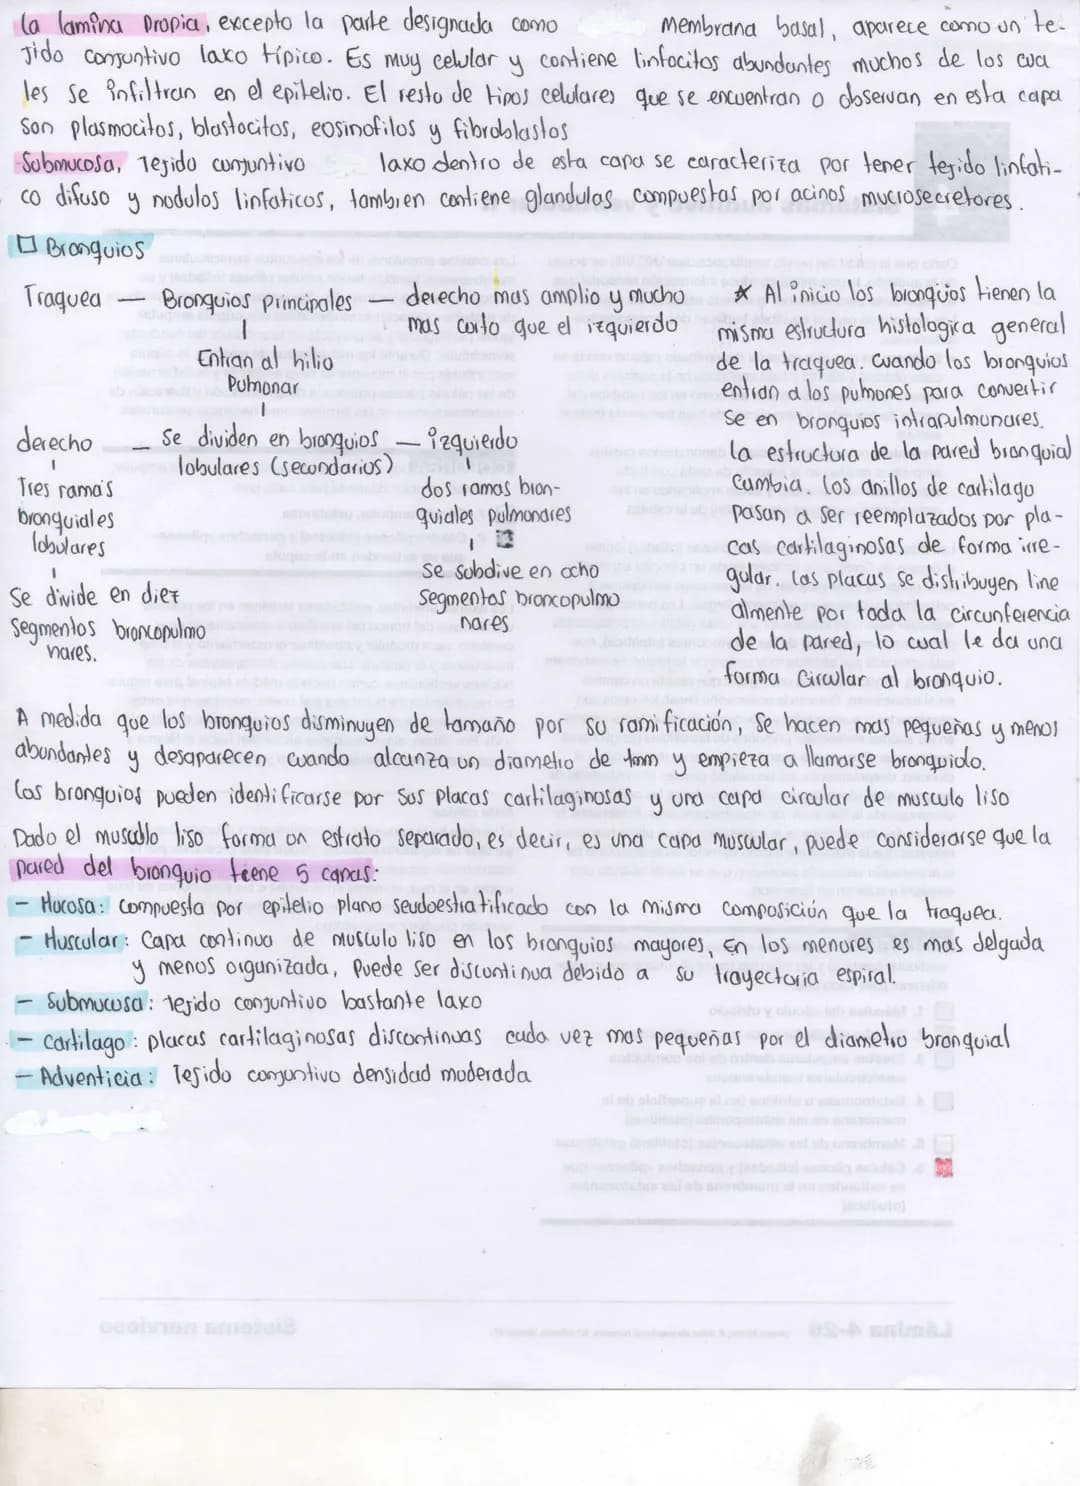 la lamina propia, excepto la parte designada como membrana basal, aparece como un te-
jido conjuntivo laxo típico. Es muy celular y contiene linfocitos abundantes muchos de los cua
les se infiltran en el epitelio. El resto de tipos celulares que se encuentran o observan en esta capa
son plasmocitos, blastocitos, eosinofilos y fibroblastos
-Submucosa, Tejido conjuntivo laxo dentro de esta capa se caracteriza por tener tejido linfati-
co difuso y nodulos linfaticos, tambien contiene glandulas compuestas por acinos mucrosecretores.
Bronquios
Traquea — Bronquios principales — derecho mas amplio y mucho
mas corto que el izquierdo
Entran al hilio
Pulmonar
derecho — Se dividen en bronquios — izquierdo
lobulares (secundarios)
Tres ramas
bronquiales
lobulares
Se divide en diez
segmentos broncopulmo
nares.
dos ramas bron-
quiales pulmonares
Se subdive en ocho
segmentos broncopulmo
nares
* Al inicio los bronquios tienen la
misma estructura histologica general
de la traquea. cuando los bronquios
entran a los pulmones para convertir
se en bronquios intrapulmonares.
la estructura de la pared bronquial
cambia. los anillos de cartilago
pasan a ser reemplazados por pla-
cas cartilaginosas de forma irre-
gular. las placas se distribuyen line
almente por toda la circunferencia
de la pared, lo cual le da una
forma circular al bronquio.
A medida que los bronquios disminuyen de tamaño por su ramificación, se hacen mas pequeñas y menos
abundantes y desaparecen cuando alcanza un diametro de 1mm y empieza a llamarse bronquiolo.
los bronquios pueden identificarse por sus placas cartilaginosas y una capa circular de musculo liso
Dado el muscublo liso forma un estrato separado, es decir, es una capa muscular, puede considerarse que la
pared del bronquio tiene 5 capas:
- Mucosa: compuesta por epitelio plano seudoestratificado con la misma composición que la traquea.
- Muscular: Capa continua de musculo liso en los bronquios mayores, En los menores es mas delgada
y menos organizada, Puede ser discontinua debido a su trayectoria espiral.
- Submucosa: Tejido conjuntivo bastante laxo
- Cartilago: placas cartilaginosas discontinuas cada vez mas pequeñas por el diametro bronquial
- Adventicia: Tejido conjuntivo densidad moderada